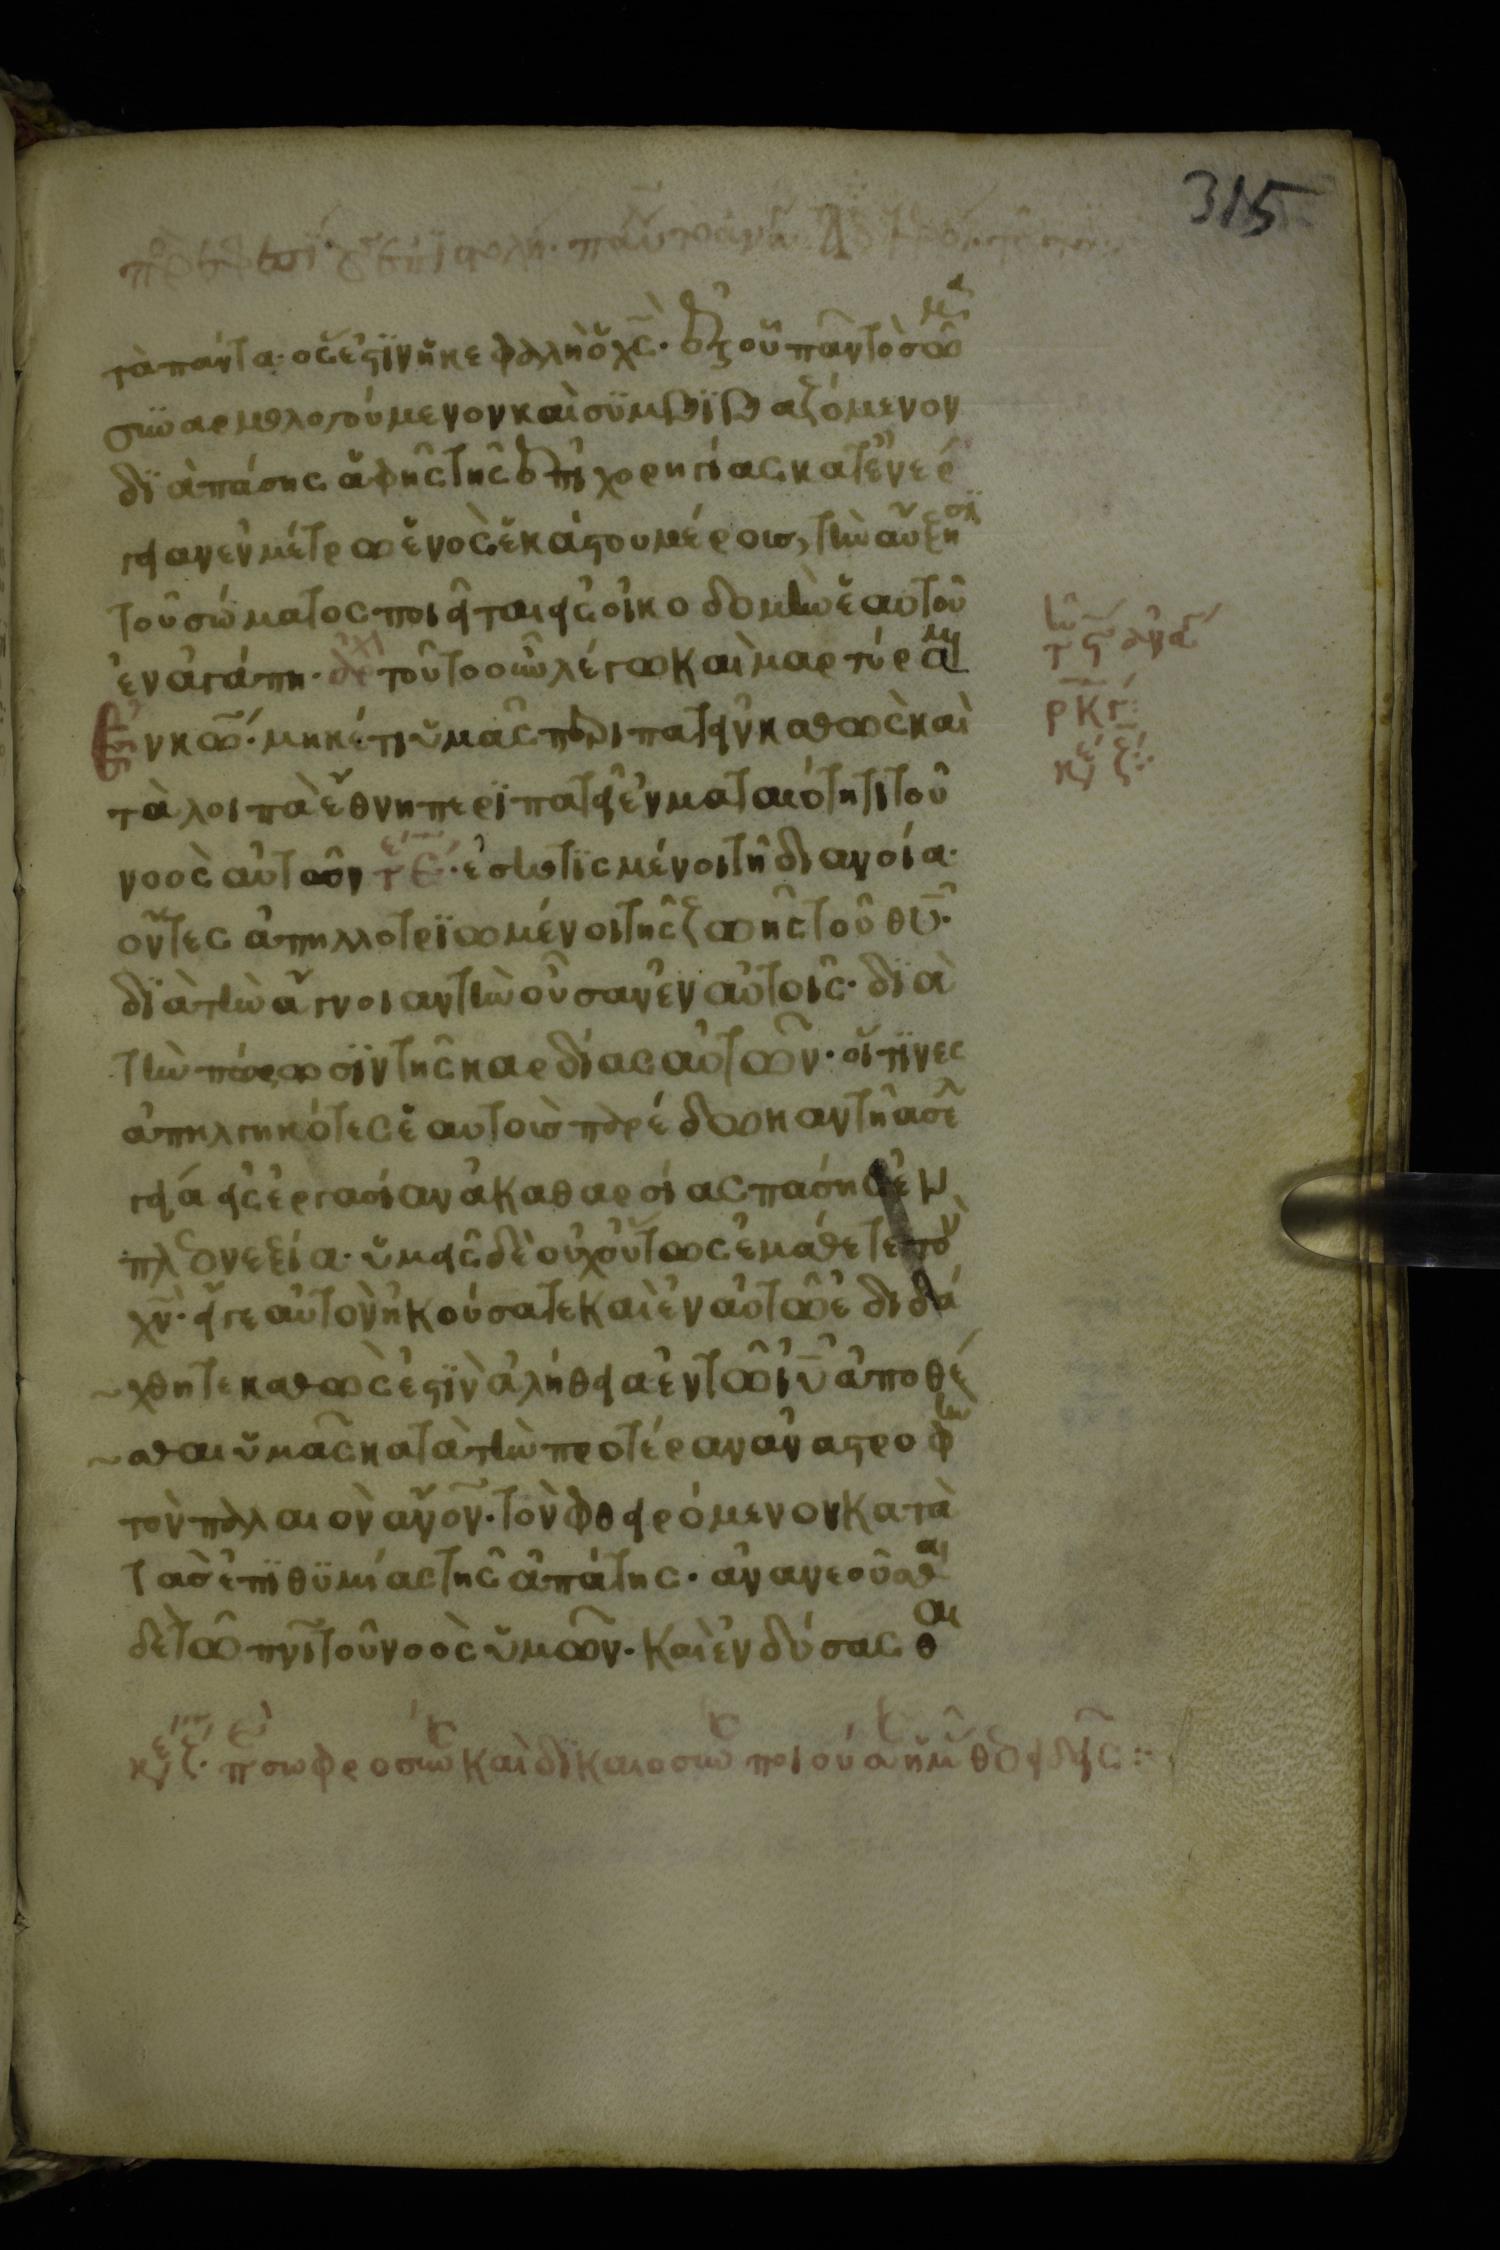 315
τὰ πάντα· ὅς ἐστϊν ἡ κεφαλὴ ὁ χς̅· ἐξ οὗ πᾶν τὸ σῶμα
συναρμολογούμενον καὶ συμβϊβαζόμενον
δϊὰ πάσης ἁφῆς τῆς ἐπιχορηγίας κατ ἐνέρ
γειαν ἐν μέτρω ἑνὸς ἑκάστου μέρους, τὴν αὔξησϊν
τοῦ σώματος ποιεῖται εἰς οἰκοδομὴν ἑαυτοῦ
ἐν ἀγάπη· τοῦτο οὖν λέγω καὶ μαρτύρομαι
ἐν κω̅· μηκέτι ὑμᾶς περιπατεῖν καθὼς καὶ
τὰ λοιπὰ ἔθνη περϊπατεῖ ἐν ματαιότητι τοῦ
νοὸς αὐτῶν τέ· ἐσκοτϊσμένοι τῆ διανοία·
ὄντες ἀπηλλοτρϊωμένοι τῆς ζωῆς τοῦ θυ̅·
δϊὰ τὴν ἄγνοιαν τὴν οὖσαν ἐν αὐτοῖς· δϊὰ
τὴν πώρωσϊν τῆς καρδίας αὐτῶν· οἵτϊνες
ἀπηλγηκότες ἑαυτοὺς παρέδωκαν τῆ ἀσελ
γεία εἰς ἐργασίαν ἀκαθαρσίας πάσης ἐν
πλεονεξία· ὑμεῖς δὲ οὐχ οὕτως ἐμάθετε τὸν
χν̅· εἴγε αὐτὸν ἠκούσατε καὶ ἐν αὐτῶ ἐδιδά
χθητε καθὼς ἐστϊν ἀλήθεια ἐν τῶ ιυ̅ ἀποθέ
σθαι ὑμᾶς κατὰ τὴν προτέραν ἀναστροφὴν
τὸν παλαιὸν ἄνον̅· τὸν φθειρόμενον κατὰ
τὰς ἐπϊθϋμίας τῆς ἀπάτης· ἀνανεοῦσθαι
δὲ τῶ πνι̅ τοῦ νοὸς ὑμῶν· καὶ ἐνδύσασθαι
ρκγ